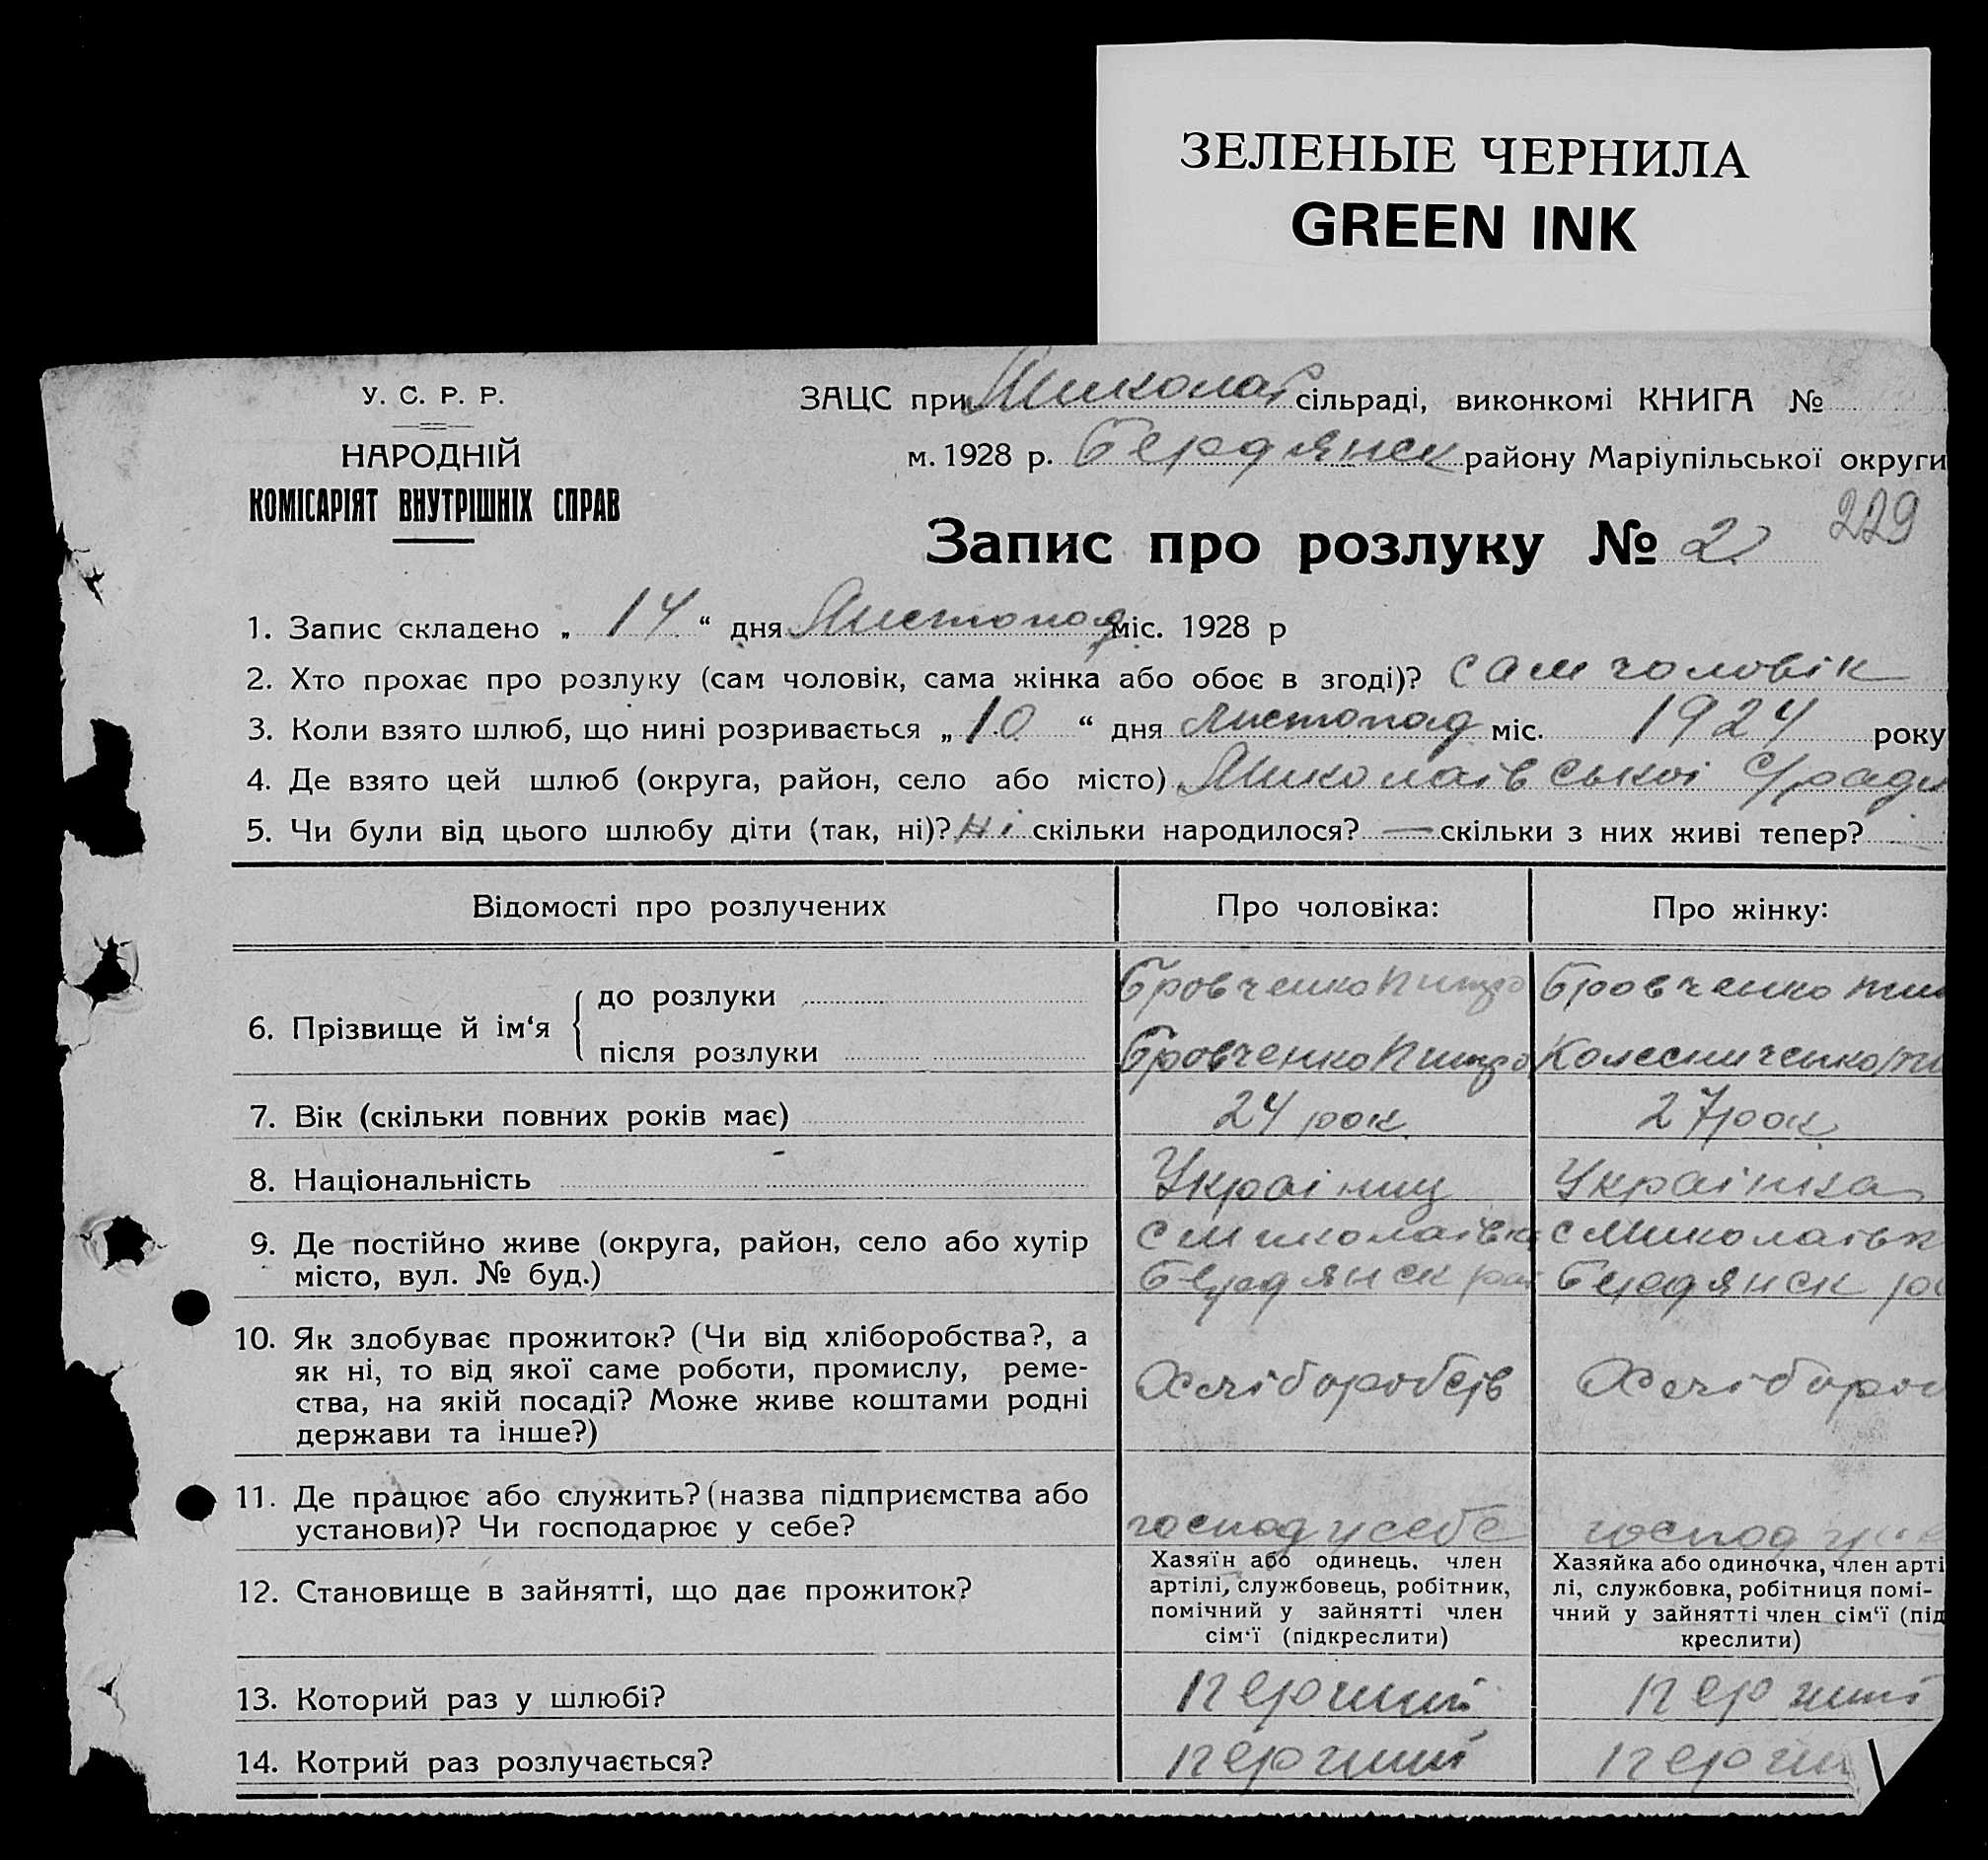 ЗЕЛЕНЫЕ ЧЕРНИЛА
GREEN INK
У. С. Р. Р.
НАРОДНІЙ
КОМІСАРІЯТ ВНУТРІШНІХ СПРАВ
ЗАЦС при Миколаї сільраді, виконкомі КНИГА №
м. 1928 р. Бердянск району Маріупільської округи
229
Запис про розлуку № 2
1. Запис складено „ 14 “ дня Листопад міс. 1928 р
2. Хто прохає про розлуку (сам чоловік, сама жінка або обоє в згоді)? сам чоловік
3. Коли взято шлюб, що нині розривається „ 10 “ дня листопад міс. 1924 року
4. Де взято цей шлюб (округа, район, село або місто) Миколаівськоі с/ради
5. Чи були від цього шлюбу діти (так, ні)? ні скільки народилося? — скільки з них живі тепер?
Відомості про розлучених Про чоловіка: Про жінку:
6. Прізвище й ім‘я
до розлуки Бровченко Бровченко
після розлуки Бровченко Колесниченко
7. Вік (скільки повних років має) 24 рок 27 рок
8. Національність Украінец Украінка
9. Де постійно живе (округа, район, село або хутір с Миколаівка с Миколаівк
місто, вул. № буд.) Бердянск рай Бердянск ра
10. Як здобуває прожиток? (Чи від хліборобства?, а
як ні, то від якої саме роботи, промислу, реме-
ства, на якій посаді? Може живе коштами родні
держави та інше?)
Хлібороб Хлібороб
11. Де працює або служить? (назва підприємства або
установи)? Чи господарює у себе? господ у себе господ у себе
12. Становище в зайнятті, що дає прожиток?
Хазяїн або одинець, член
артілі, службовець, робітник,
помічний у зайнятті член
сім‘ї (підкреслити)
Хазяйка або одиночка, член арті
лі, службовка, робітниця помі-
чний у зайнятті член сім‘ї (під
креслити)
13. Которий раз у шлюбі? перший перший
14. Котрий раз розлучається? перший перши